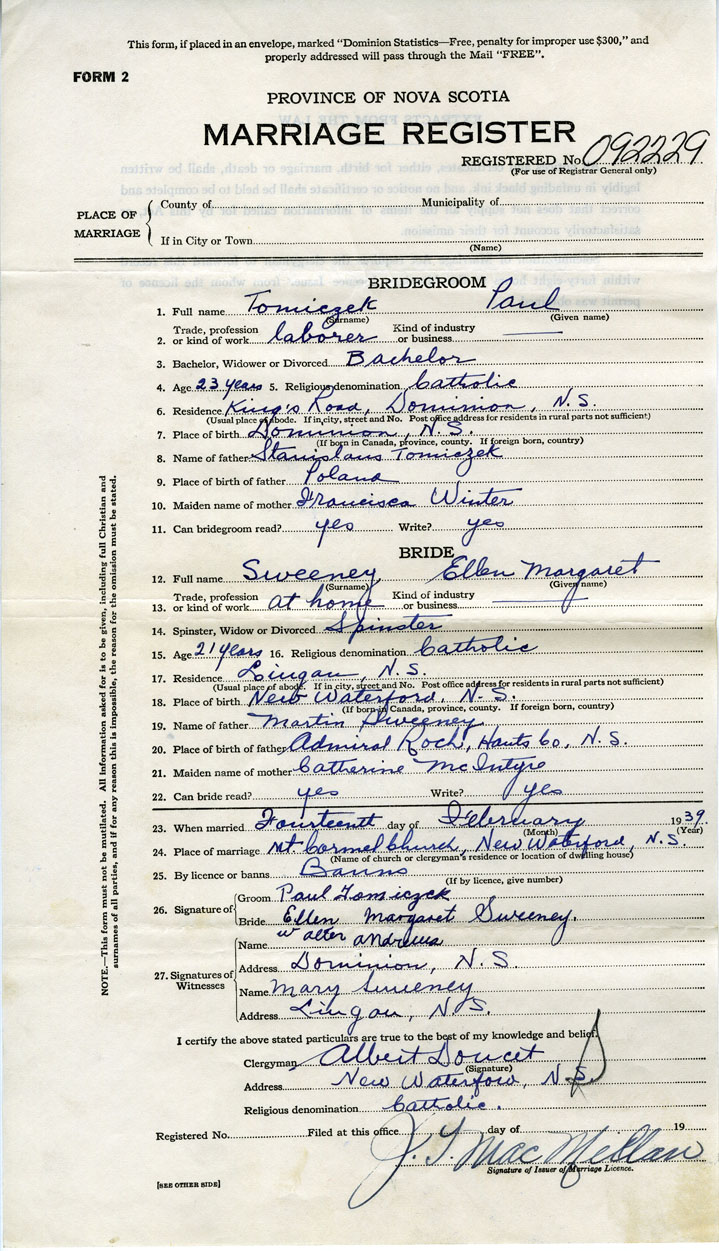 This form, if placed in an envelope, marked “Dominion Statistics—Free, penalty for improper use $300,” and
properly addressed will pass through the Mail “FREE”.
FORM 2
PROVINCE OF NOVA SCOTIA
MARRIAGE REGISTER
REGISTERED No. 092229
(For use of Registrar General only)
PLACE OF MARRIAGE
County of Municipality of
If in City or Town
(Name)
BRIDEGROOM
1. Full name Tomiczek Paul
(Surname) (Given name)
2. Trade, profession or kind of work laborer Kind of industry or business
3. Bachelor, Widower or Divorced Bachelor
4. Age 23 years 5. Religious denomination Catholic
6. Residence King's Road, Dominion, N.S.
(Usual place of abode. If in city, street and No. Post office address for residents in rural parts not sufficient)
7. Place of birth Dominion, N.S.
(If born in Canada, province, county. If foreign born, country)
8. Name of father Stanislaus Tomiczek
9. Place of birth of father Poland
10. Maiden name of mother Francisca Winter
11. Can bridegroom read? yes Write? yes
BRIDE
12. Full name Sweeney Ellen Margaret
(Surname) (Given name)
13. Trade, profession or kind of work at home Kind of industry or business
14. Spinster, Widow or Divorced Spinster
15. Age 21 years 16. Religious denomination Catholic
17. Residence Lingan, N.S.
(Usual place of abode. If in city, street and No. Post office address for residents in rural parts not sufficient)
18. Place of birth New Waterford, N.S.
(If born in Canada, province, county. If foreign born, country)
19. Name of father Martin Sweeney
20. Place of birth of father Admiral Rock, Hants Co, N.S.
21. Maiden name of mother Catherine McIntyre
22. Can bride read? yes Write? yes
23. When married Fourteenth day of February 1939.
(Month) (Year)
24. Place of marriage Mt Carmel Church, New Waterford, N.S.
(Name of church or clergyman's residence or location of dwelling house)
25. By licence or banns Banns
(If by licence, give number)
26. Signature of
Groom Paul Tomiczek
Bride Ellen Margaret Sweeney.
27. Signatures of Witnesses
Name Walter Andrews
Address Dominion, N.S.
Name Mary Sweeney
Address Lingan, N.S.
I certify the above stated particulars are true to the best of my knowledge and belief.
Clergyman Albert Doucet
(Signature)
Address New Waterford, N.S.
Religious denomination Catholic.
Registered No. Filed at this office day of 19
J. S. MacMellan
Signature of Issuer of Marriage Licence.
[SEE OTHER SIDE]
NOTE.—This form must not be mutilated. All information asked for is to be given, including full Christian and
surnames of all parties, and if for any reason this is impossible, the reason for the omission must be stated.